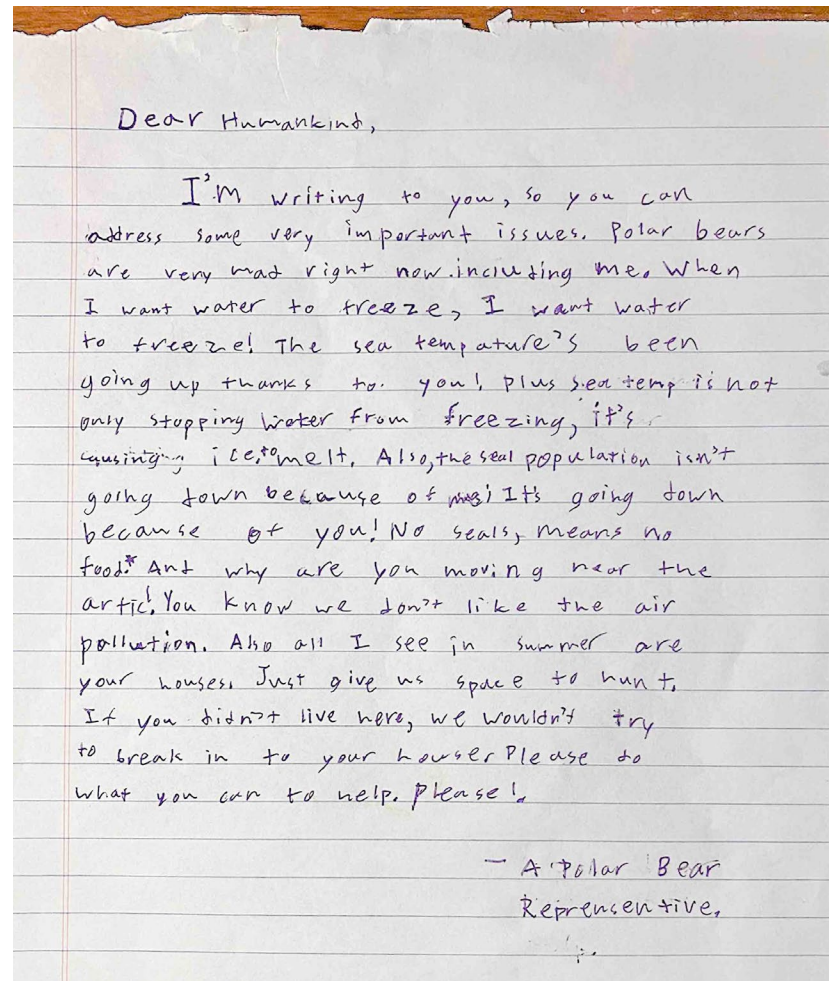 Dear Humankind,
I'm writing to you, so you can
address some very important issues. Polar bears
are very mad right now. including me. When
I want water to freeze, I want water
to freeze! The sea tempature's been
going up thanks to you! Plus sea temp is not
only stopping water from freezing, it's
causing ice, to melt. Also, the seal population isn't
going down because of It's going down
because of you! No seals, means no
food!* And why are you moving near the
artic! You know we don't like the air
pollution. Also all I see in summer are
your houses. Just give us space to hunt.
If you didn't live here, we wouldn't try
to break in to your Please do
what you can to help. Please!
- A Polar Bear
Reprensentive.